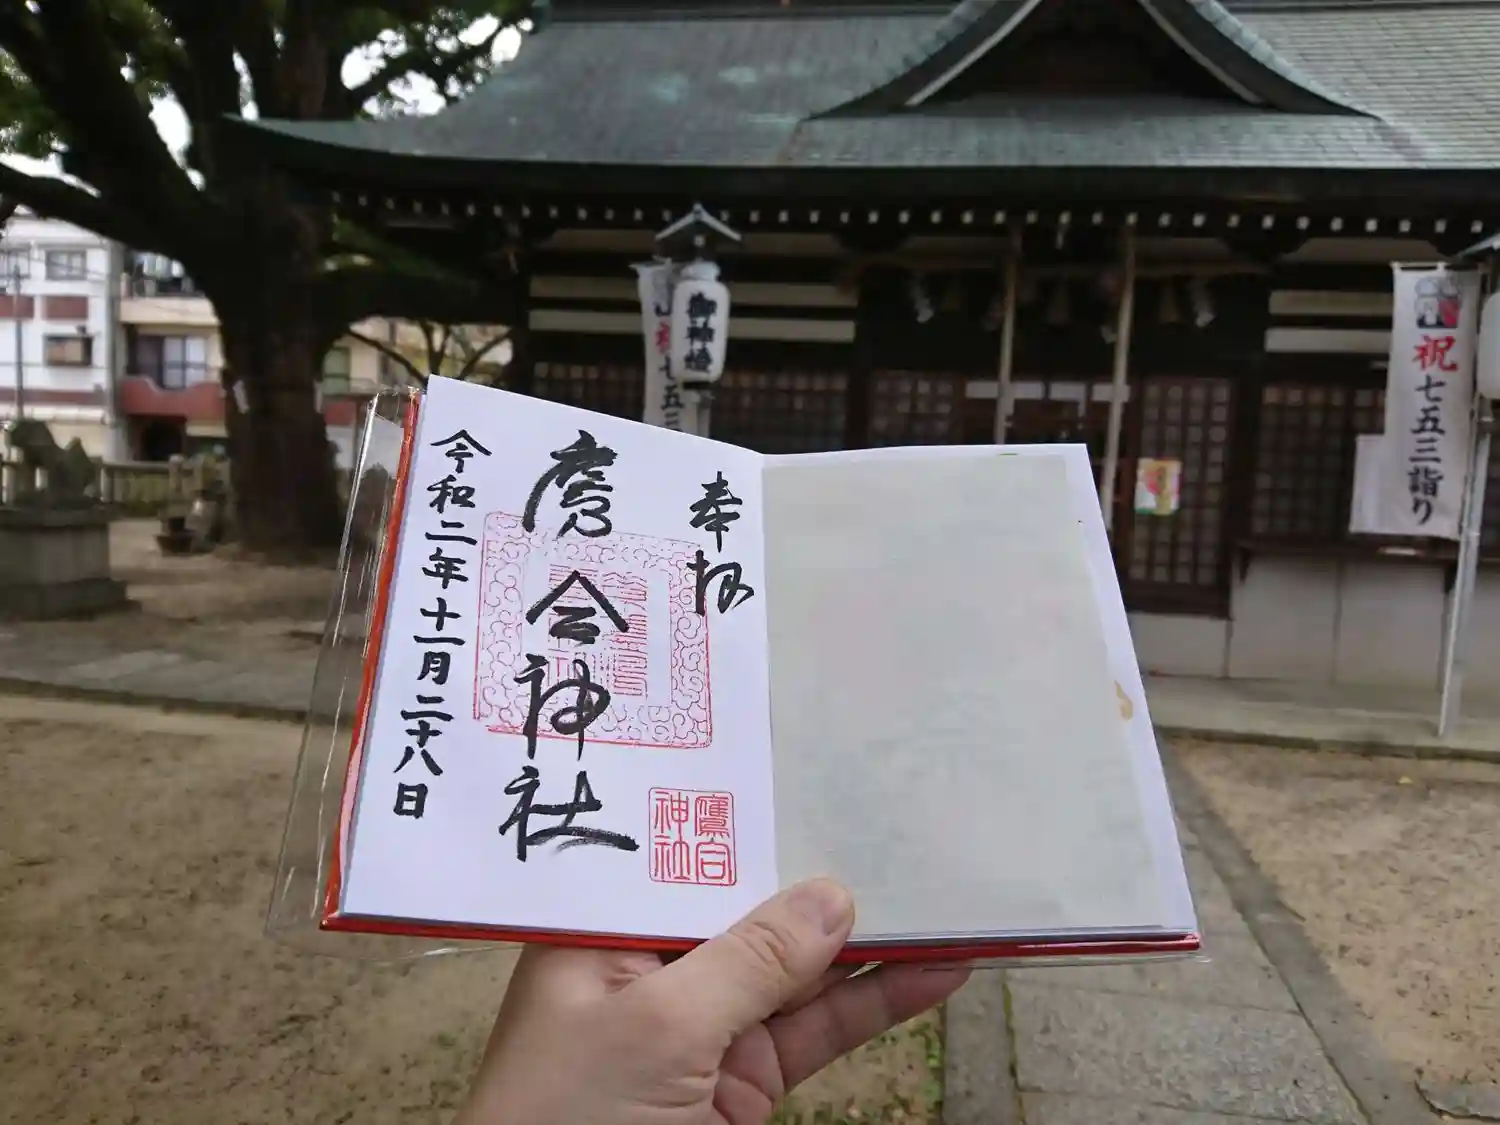 奉拝
鷹合神社
令和二年十一月二十八日
鷹合
神社
御神燈
祝 七五三
祝 七五三詣り